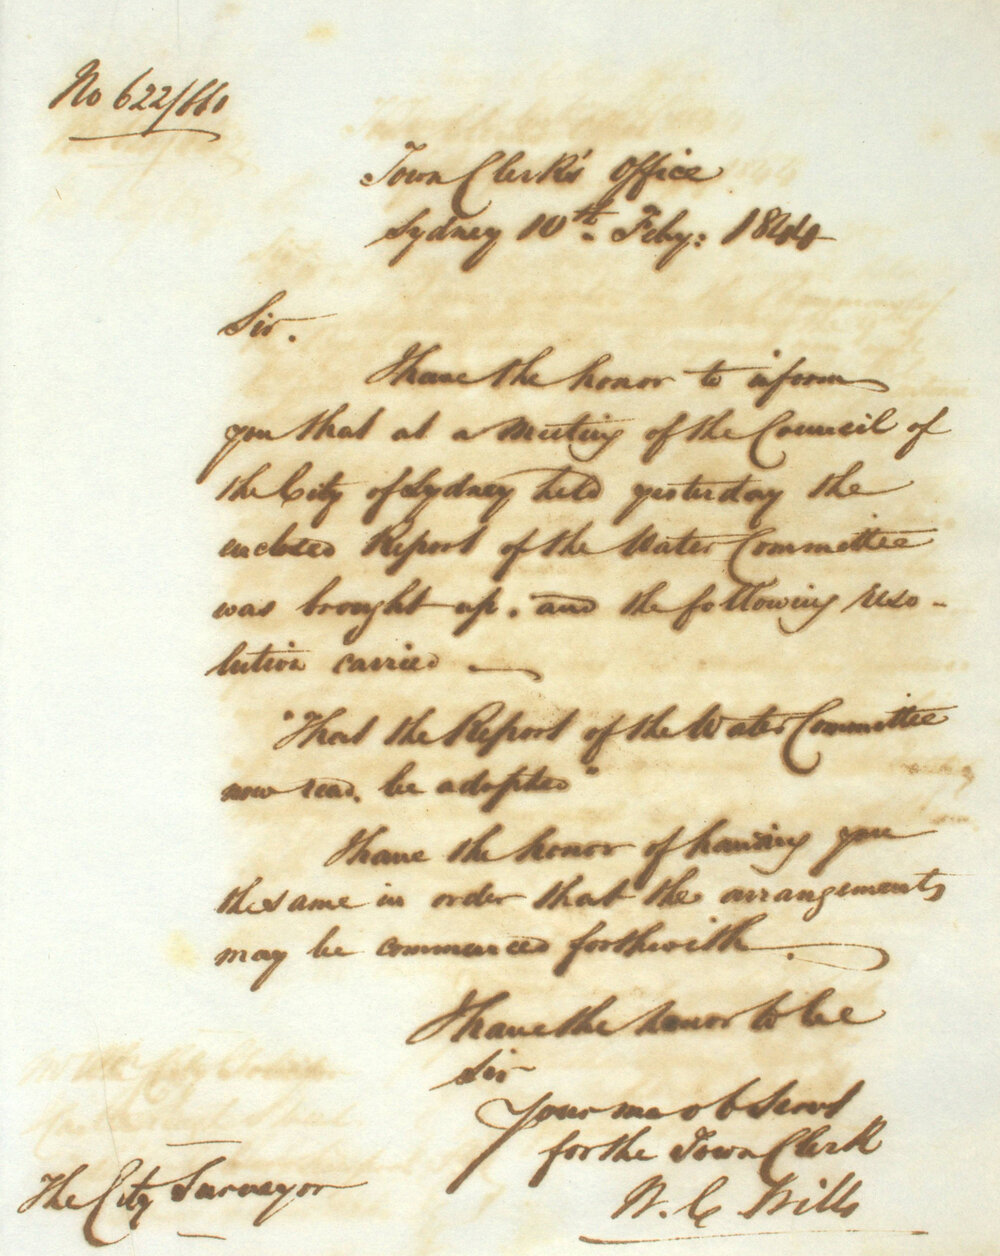 No 622/660
Town Clerk's Office
Sydney 10th. Feby: 1844
Sir.
I have the honor to inform
you that at a Meeting of the Council of
the City of Sydney held yesterday the
enclosed Report of the Water Committee
was brought up. and the following reso-
lution carried —
"That the Report of the Water Committee
now read. be adopted"
I have the honor of handing you
the same in order that the arrangements
may be commenced forthwith.
I have the honor to be
Sir
Your mo ob Servt
for the Town Clerk
W. C Wills
The City Surveyor